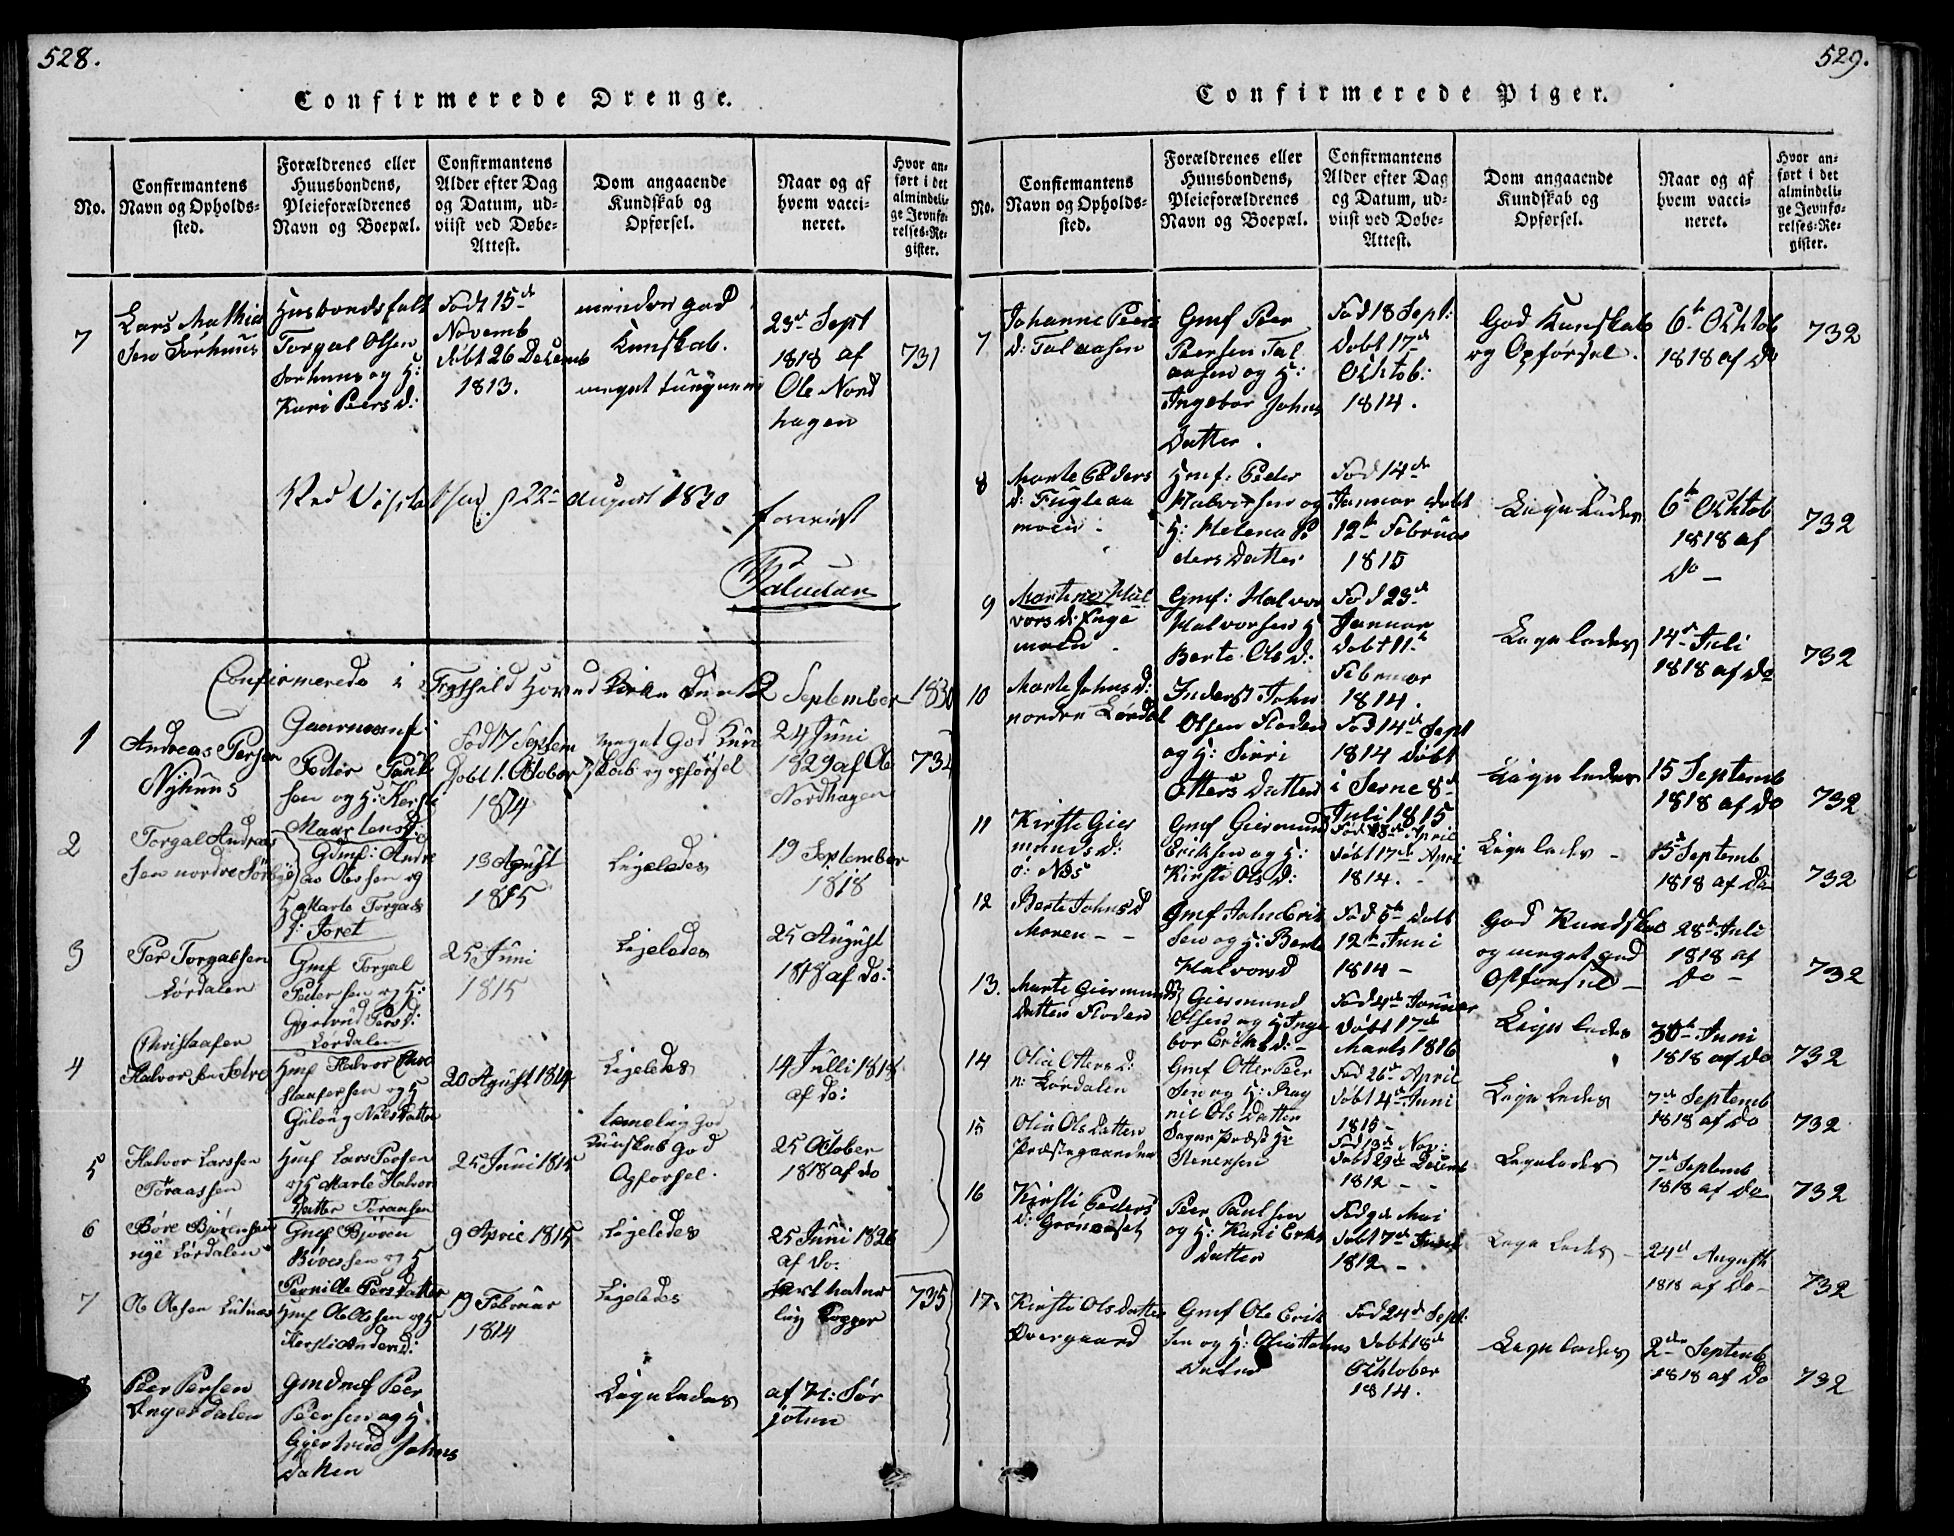 528.
Confirmerede Drenge.
No.
Confirmantens
Navn og Opholds-
sted.
Forældrenes eller
Huusbondens,
Pleieforældrenes
Navn og Boepæl.
Confirmantens
Alder efter Dag
og Datum, ud-
viist ved Døbe-
Attest.
Dom angaaende
Kundskab og
Opførsel.
Naar og af
hvem vacci-
neret.
Hvor an-
ført i det
almindeli-
ge Jevnfø-
relses-Re-
gister.
7
Lars Mathia
Sen Sørhuus
Husbondsfolk
Torgal Olsen
Sørhuus og H:
Kari Peers D:
Født 15de
Novemb
døbt 26 Decemb
1813.
mindre god
Kunskab.
meget tungnem
23de Sept
1818 af
Ole Nord
hagen
731
22de August 1830
foreviist
Paludan
Confirmerede i Trysild Hovedkirke den 12 September 1830
1
Andreas Persen
Nyhuus
Gaarmand
Peder
sen og H: Kersti
Født 17 Septem
Dobt 1. October
1814
meget God Kun
skab og opførsel
24 Juni
1829 af Ole
Nordhagen
732
2
Torgal Andreas
Sen nordre Sørbye
Gdmf: Andre
as Olessen og
H Marte Torgals
D: Joret
13 August
1815
Ligeledes
19 September
1818
3
Per Torgalsen
Lørdalen
Gmf Torgal
Pedersen og H:
Gjertrud Pers D:
Lørdalen
25 Juni
1815
Ligeledes
25 August
1818 af do:
4
Christaafer
Halvorsen
Hmf Halvor Chri
staafersen og H
Gulaug Nilsdatter
20 August 1814
Ligeledes
14 Julli 1818
af do:
5
Halvor Larssen
Toraassen
Hmf Lars Persen
og H Marte Halvor
Datter Toraasen
25 Juni 1815
temelig God
Kunskab God
Opførsel.
25 October
1818 af do
6
Børe Bjørensen
nye Lørdalen
Gmf Bjøren
Børessen og H
Pernille Persdatter
9 April 1815
Ligeledes
25 Juni 1826
af do:
7
Ole Olesen Lutnæs
Hmf Ole Olessen og H
Kersti Anders D:
19 Februar
1814
Ligeledes
hart naturlig Kopper
735
Peer Persen
Engerdalen
Gmdmf Peer
Peersen og H.
Gjertrud Johns
Datter
Ligeledes
af H: Sør
joten
529.
Confirmerede Piger.
No.
Confirmantens
Navn og Opholds-
sted.
Forældrenes eller
Huusbondens,
Pleieforældrenes
Navn og Boepæl.
Confirmantens
Alder efter Dag
og Datum, ud-
viist ved Døbe-
Attest.
Dom angaaende
Kundskab og
Opførsel.
Naar og af
hvem vacci-
neret.
Hvor an-
ført i det
almindeli-
ge Jevnfø-
relses-Re-
gister.
7
Johanne Peers
D: Talaasen
Gmf Peer
Peersen Tal
aasen og H:
Ingebor Johns
Datter.
Fød 18 Sept:
Døbt 17de
Ochtob:
1814.
God Kunskab
og Opførsel.
6te Ochtob
1818 af Do
732
8
Marte Peders
D: Fugleaa
moen.
Hmf: Peder
Halvorsen og
H: Helena Pe
ders Datter
Fød 14de
Januar døbt
12te Februar
1815
Ligeledes
6te Ochtob
1818 af
Do
732
9
Martine Hal
vors D: Enge
moen.
Gmf: Halvor
Halvorsen H
Berte Ols D:
Fød 23de
Januar
døbt 11te
Februar
1814.
Ligeledes
14de Juli
1818 af do
732
10
Marte Johns D:
nordre Lørdal
Inderst John
Olsen Floden
og H: Sirri
Otters Datter
Fød 14de Sept
1814 døbt
i Serne 8de
Juli 1815
Ligeledes
15 Septemb
1818 af do
732
11
Kirsti Gier
munds D:
ø: Næs
Gmf Giermund
Eriksen og H:
Kirsti Ols D:
Fød 8de April
døbt 17de April
1814.
Ligeledes
15de Septemb
1818 af Do
732
12
Berte Johns D
Moren
Gmf John Erik
sen og H: Berte
Halvors D
Fød 5te døbt
12te Juni
1814
God Kundskab
og meget god
Opførsel
28de Juli
1818 af
do
732
13.
Marte Giermunds
datter Floden
Giermund
Olsen og H Inge
bor Eriks D:
Fød 4de Januar
døbt 17de
Marts 1816
Ligeledes
30te Juni
1818 af do
732
14
Olia Otters D:
n: Lørdalen
Gmf Otter Peer
sen og H: Rag
nil Ols Datter
Fød 26de April
døbt 4de Juni
1815
Ligeledes
7de Septemb
1818 af do
732
15
Olia Olsdatter
Præstegaarden
Sogne Præst Hr
Stenersen
Fød 13de Nov:
døbt 29de Decemb
1812
Ligeledes
7de Septemb
1818 af do
732
16
Kirsti Peders
D: Grønæset
Peer Paulsen
og H: Kari Eriks
datter
Fød 9de Mai
døbt 7de Juni
1812
Ligeledes
24de August
1818 af do
732
17.
Kirsti Olsdatter
Øvergaard
Gmf Ole Erik
sen og H: Olia Halvors
Datter
Fød 24de Sept:
døbt 18de
Ochtober
1814.
Ligeledes
2den Septemb
1818 af do
732